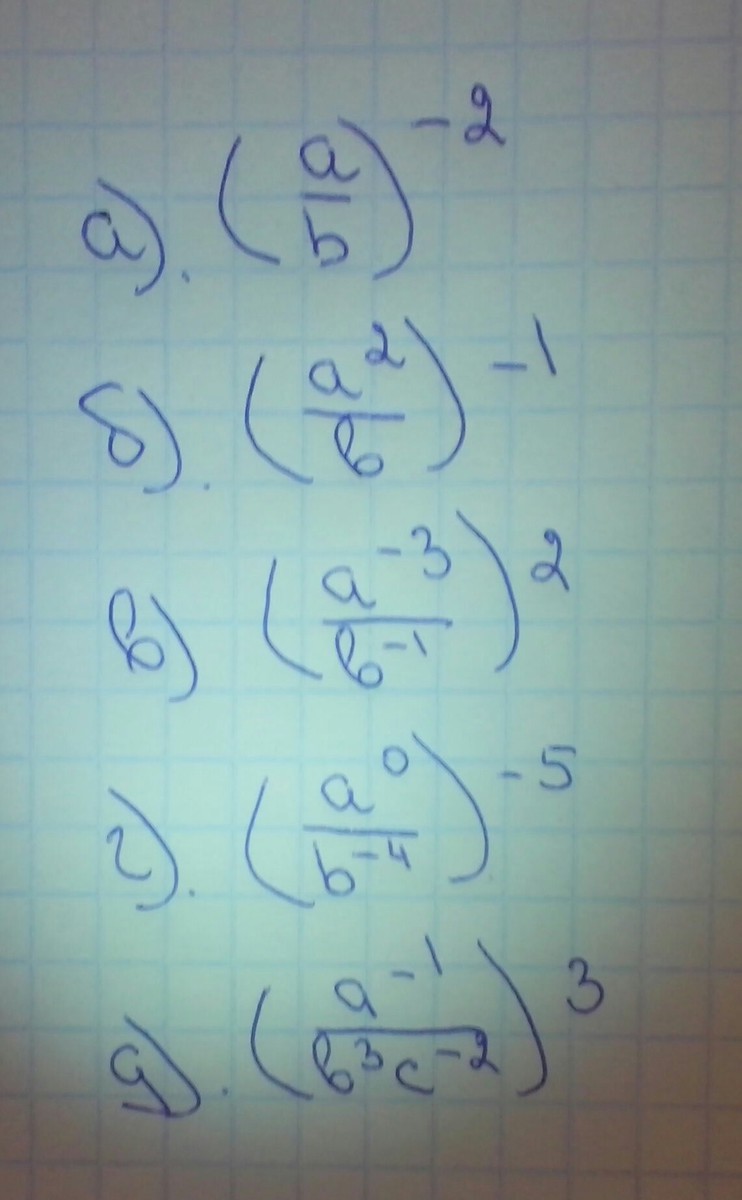 а). (a/b)^-2
б). (a^2/b)^-1
в) (a^-3/b^-1)^2
г). (a^0/b^-4)^-5
д). (a^-1/b^3c^-2)^3